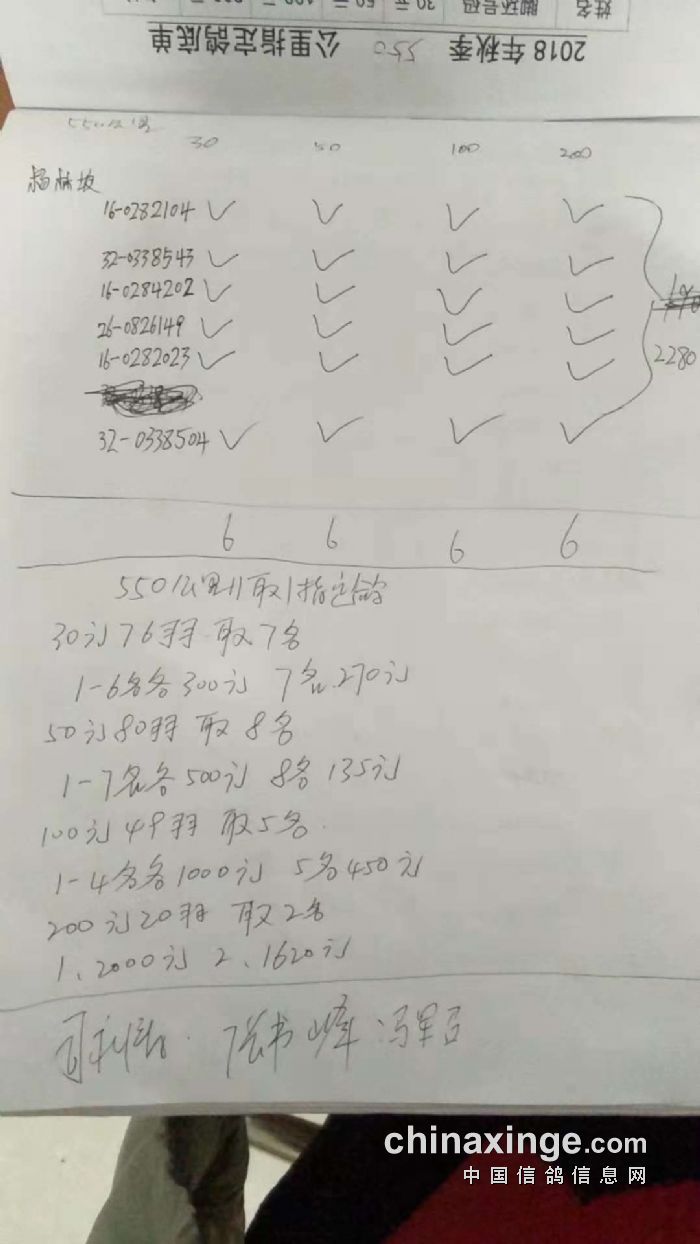 姓名 脚环号码 30元 50元 100元 200元
2018年秋季 550 公里指定鸽底单
550公里
30 50 100 200
杨林坡
16-0282104 ✓ ✓ ✓ ✓
32-0338543 ✓ ✓ ✓ ✓
16-0284202 ✓ ✓ ✓ ✓
26-0826149 ✓ ✓ ✓ ✓
16-0282023 ✓ ✓ ✓ ✓
2280
32-0338504 ✓ ✓ ✓ ✓
6 6 6 6
550公里11取1指定鸽
30元76羽 取7名
1-6名各300元 7名270元
50元80羽 取8名
1-7名各500元 8名135元
100元49羽 取5名.
1-4名各1000元 5名450元
200元20羽 取2名
1、2000元 2、1620元
chinaxinge.com
中国信鸽信息网